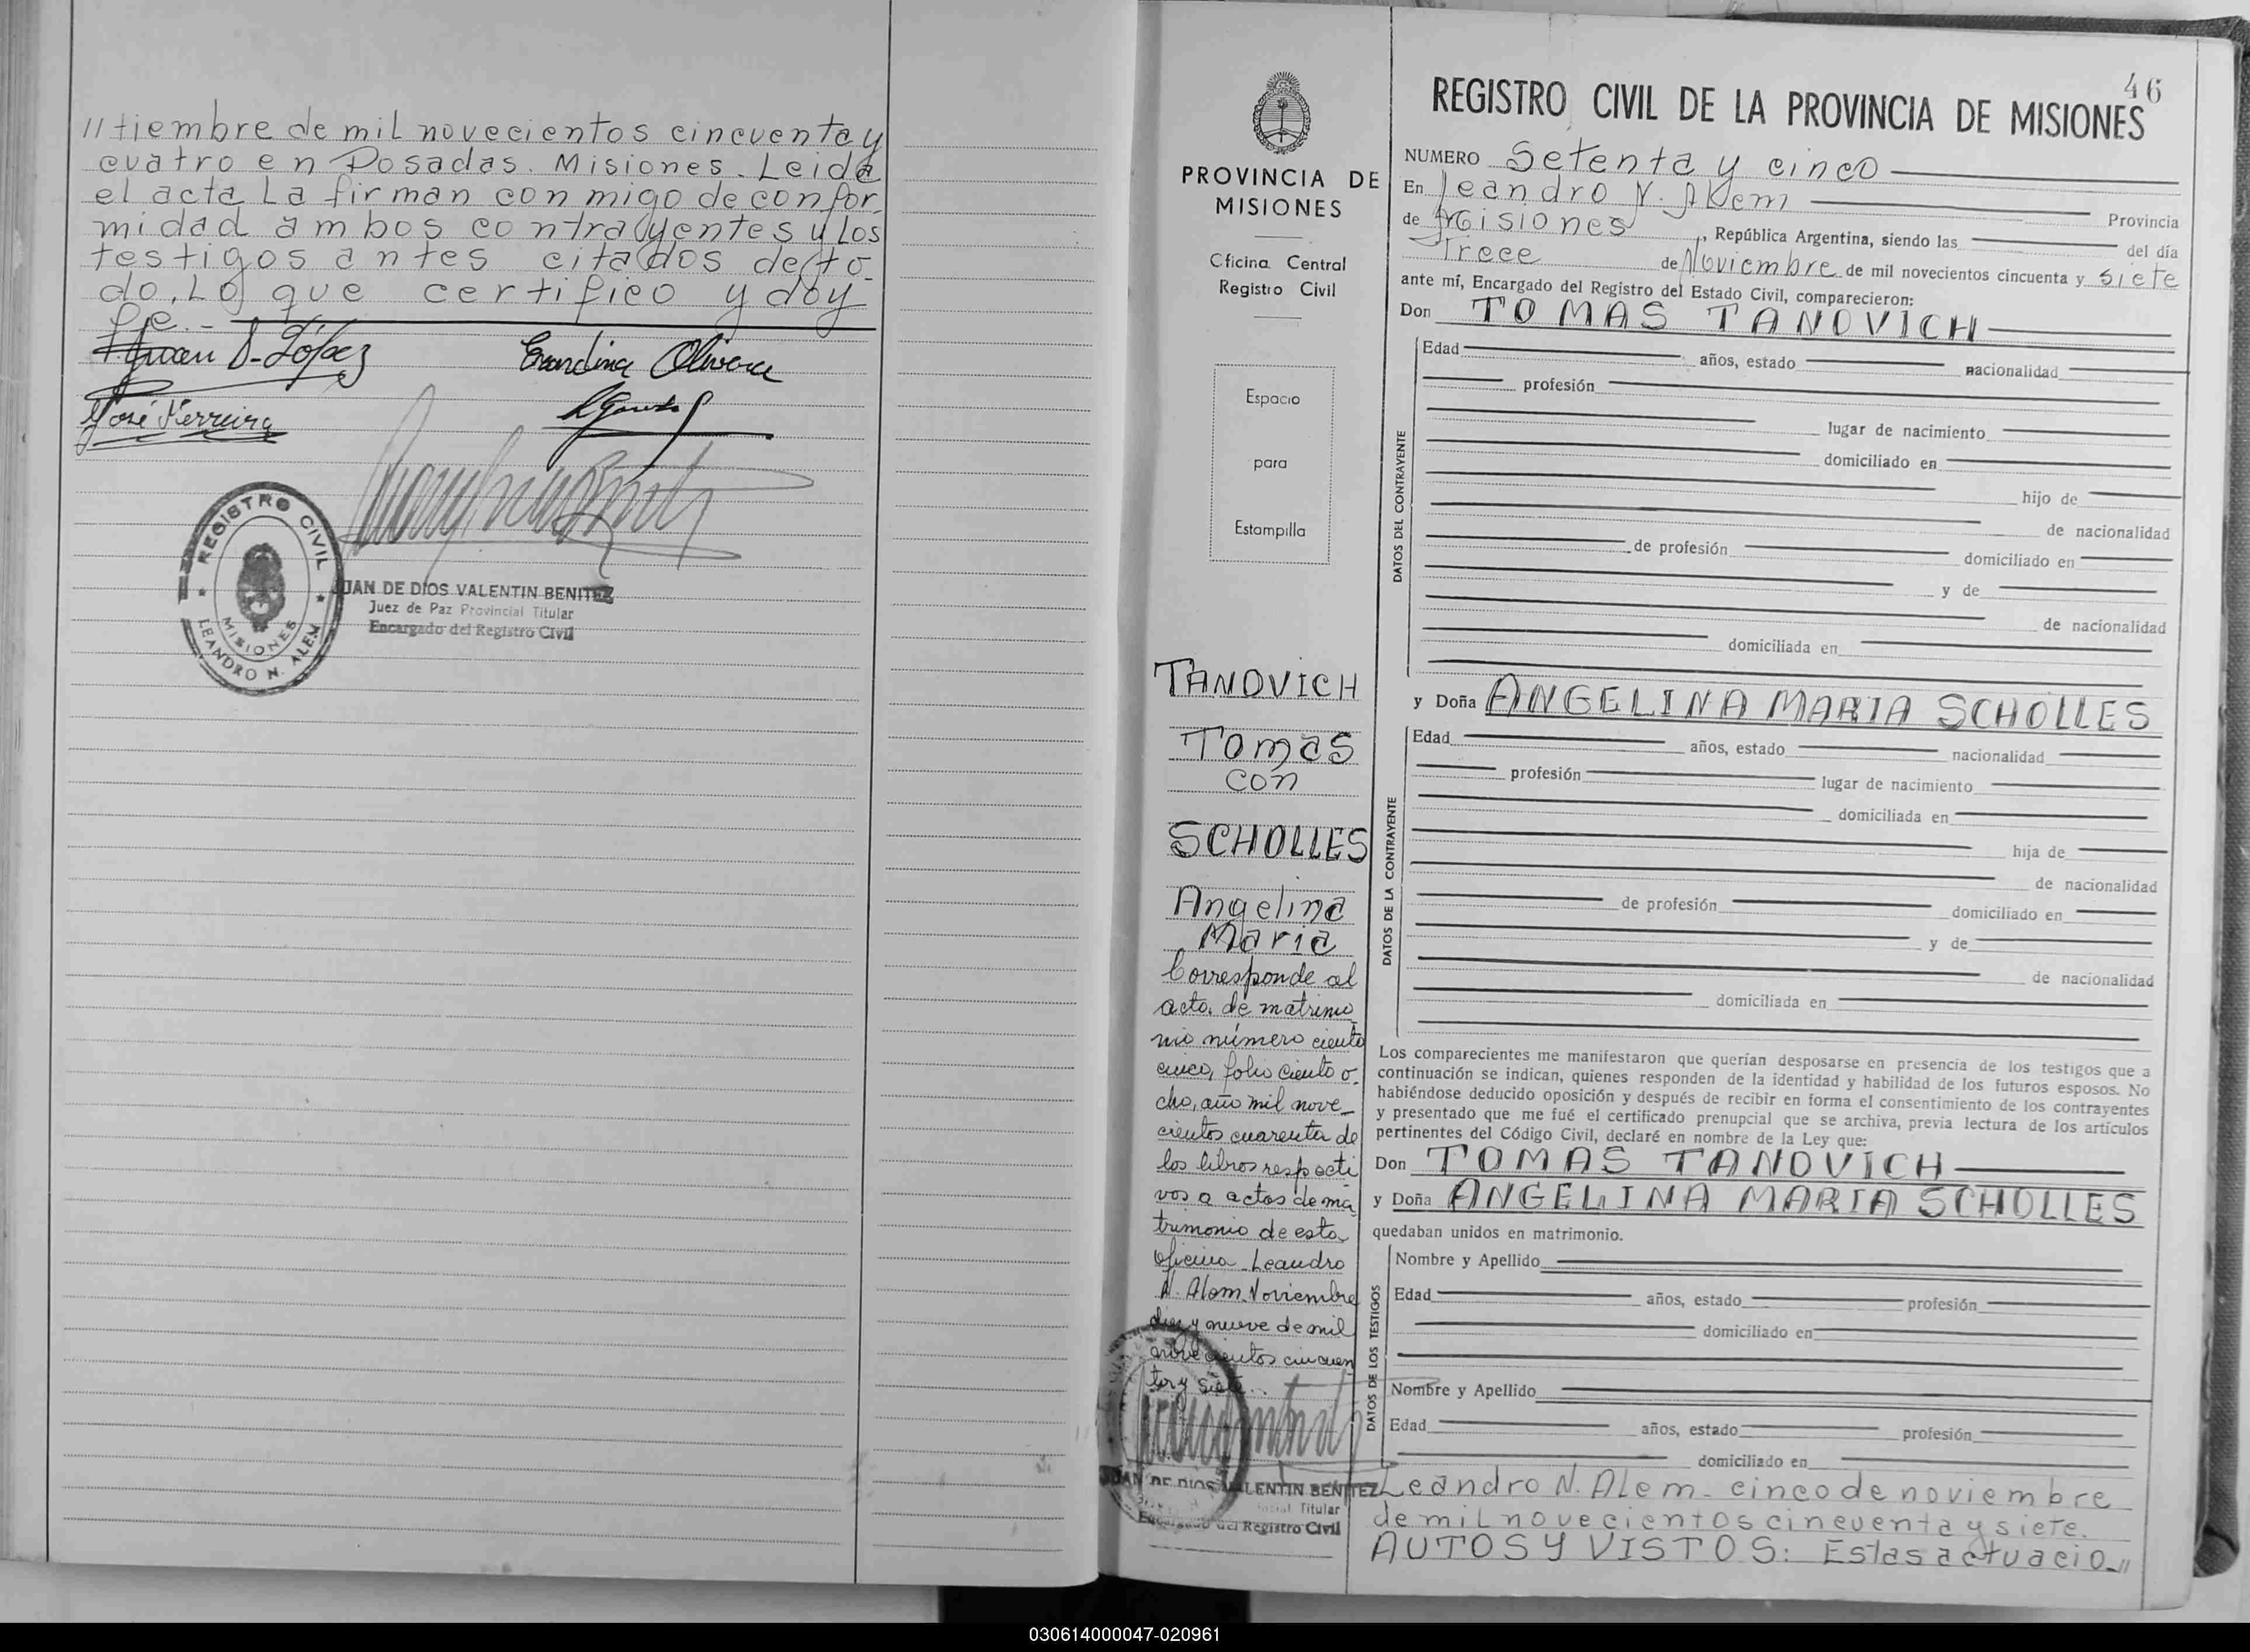 //tiembre de mil novecientos cincuenta y
cuatro en Posadas. Misiones. Leida
el acta La firman conmigo de confor-
midad ambos contrayentes y los
testigos antes citados de to-
do, Lo que certifico y doy
fe.-
Juan D. López
Erundina Olivera
José Ferreira
REGISTRO CIVIL
MISIONES
LEANDRO N. ALEM
JUAN DE DIOS VALENTIN BENITEZ
Juez de Paz Provincial Titular
Encargado del Registro Civil
PROVINCIA DE
MISIONES
Oficina Central
Registro Civil
Espacio
para
Estampilla
TANOVICH
Tomas
con
SCHOLLES
Angelina
Maria
Corresponde al
acta de matrimo_
nio número ciento
cinco, folio ciento o_
cho, año mil nove_
cientos cuarenta de
los libros respecti
vos a actas de ma_
trimonio de esta
oficina. Leandro
N. Alem. Noviembre
diez y nueve de mil
novecientos cincuen
ta y siete..
JUAN DE DIOS VALENTIN BENITEZ
Titular
Encargado del Registro Civil
46
REGISTRO CIVIL DE LA PROVINCIA DE MISIONES
NUMERO Setenta y cinco
En Leandro N. Alem Provincia
de Misiones, República Argentina, siendo las del día
Trece de Noviembre de mil novecientos cincuenta y siete
ante mí, Encargado del Registro del Estado Civil, comparecieron:
Don TOMAS TANOVICH
DATOS DEL CONTRAYENTE
Edad años, estado nacionalidad
profesión
lugar de nacimiento
domiciliado en
hijo de
de nacionalidad
de profesión domiciliado en
y de
de nacionalidad
domiciliada en
y Doña ANGELINA MARIA SCHOLLES
DATOS DE LA CONTRAYENTE
Edad años, estado nacionalidad
profesión lugar de nacimiento
domiciliada en
hija de
de nacionalidad
de profesión domiciliado en
y de
de nacionalidad
domiciliada en
Los comparecientes me manifestaron que querían desposarse en presencia de los testigos que a
continuación se indican, quienes responden de la identidad y habilidad de los futuros esposos. No
habiéndose deducido oposición y después de recibir en forma el consentimiento de los contrayentes
y presentado que me fué el certificado prenupcial que se archiva, previa lectura de los artículos
pertinentes del Código Civil, declaré en nombre de la Ley que:
Don TOMAS TANOVICH
y Doña ANGELINA MARIA SCHOLLES
quedaban unidos en matrimonio.
DATOS DE LOS TESTIGOS
Nombre y Apellido
Edad años, estado profesión
domiciliado en
Nombre y Apellido
Edad años, estado profesión
domiciliado en
Leandro N. Alem. cinco de noviembre
de mil novecientos cincuenta y siete.
AUTOS Y VISTOS: Estas actuacio_//
030614000047-020961